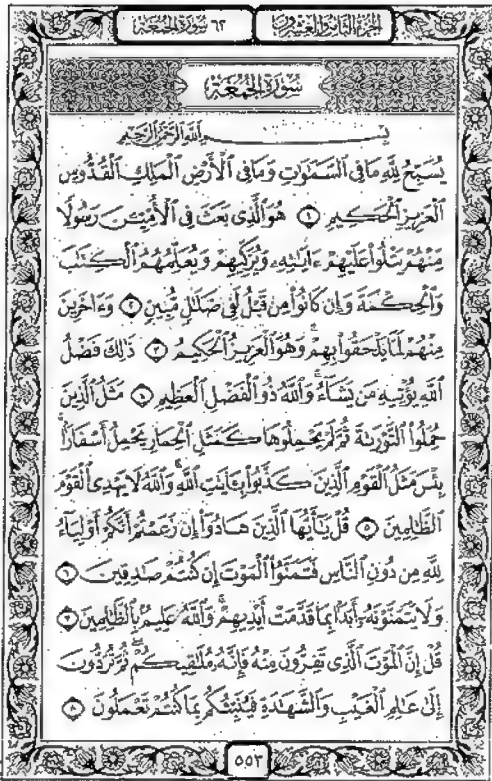 الجزء الثامن والعشرون ٦٢ سورة الجمعة
سُورَةُ الجُمُعَةِ
بِسْمِ ٱللَّهِ ٱلرَّحْمَٰنِ ٱلرَّحِيمِ
يُسَبِّحُ لِلَّهِ مَا فِي ٱلسَّمَٰوَٰتِ وَمَا فِي ٱلْأَرْضِ ٱلْمَلِكِ ٱلْقُدُّوسِ
ٱلْعَزِيزِ ٱلْحَكِيمِ ١ هُوَ ٱلَّذِى بَعَثَ فِي ٱلْأُمِّيِّـۧنَ رَسُولًا
مِّنْهُمْ يَتْلُوا۟ عَلَيْهِمْ ءَايَٰتِهِۦ وَيُزَكِّيهِمْ وَيُعَلِّمُهُمُ ٱلْكِتَٰبَ
وَٱلْحِكْمَةَ وَإِن كَانُوا۟ مِن قَبْلُ لَفِى ضَلَٰلٍ مُّبِينٍ ٢ وَءَاخَرِينَ
مِنْهُمْ لَمَّا يَلْحَقُوا۟ بِهِمْ ۚ وَهُوَ ٱلْعَزِيزُ ٱلْحَكِيمُ ٣ ذَٰلِكَ فَضْلُ
ٱللَّهِ يُؤْتِيهِ مَن يَشَآءُ ۚ وَٱللَّهُ ذُو ٱلْفَضْلِ ٱلْعَظِيمِ ٤ مَثَلُ ٱلَّذِينَ
حُمِّلُوا۟ ٱلتَّوْرَىٰةَ ثُمَّ لَمْ يَحْمِلُوهَا كَمَثَلِ ٱلْحِمَارِ يَحْمِلُ أَسْفَارًۢا ۚ
بِئْسَ مَثَلُ ٱلْقَوْمِ ٱلَّذِينَ كَذَّبُوا۟ بِـَٔايَٰتِ ٱللَّهِ ۚ وَٱللَّهُ لَا يَهْدِى ٱلْقَوْمَ
ٱلظَّٰلِمِينَ ٥ قُلْ يَٰٓأَيُّهَا ٱلَّذِينَ هَادُوٓا۟ إِن زَعَمْتُمْ أَنَّكُمْ أَوْلِيَآءُ
لِلَّهِ مِن دُونِ ٱلنَّاسِ فَتَمَنَّوُا۟ ٱلْمَوْتَ إِن كُنتُمْ صَٰدِقِينَ ٦
وَلَا يَتَمَنَّوْنَهُۥٓ أَبَدًۢا بِمَا قَدَّمَتْ أَيْدِيهِمْ ۚ وَٱللَّهُ عَلِيمٌۢ بِٱلظَّٰلِمِينَ ٧
قُلْ إِنَّ ٱلْمَوْتَ ٱلَّذِى تَفِرُّونَ مِنْهُ فَإِنَّهُۥ مُلَٰقِيكُمْ ۖ ثُمَّ تُرَدُّونَ
إِلَىٰ عَٰلِمِ ٱلْغَيْبِ وَٱلشَّهَٰدَةِ فَيُنَبِّئُكُم بِمَا كُنتُمْ تَعْمَلُونَ ٨
٥٥٣